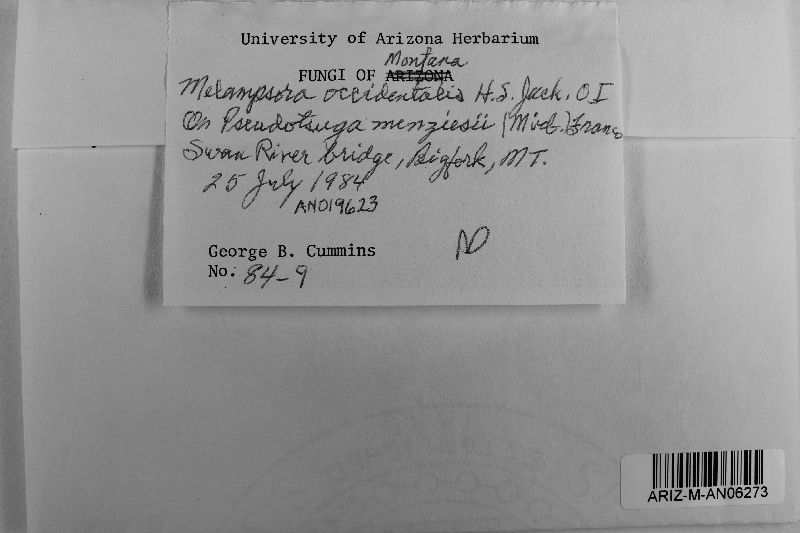 University of Arizona Herbarium
Montana
FUNGI OF ARIZONA
Melampsora occidentalis H.S. Jack. O I
On Pseudotsuga menziesii (Mirb.) Franco
Swan River bridge, Bigfork, MT.
25 July 1984
AN019623
George B. Cummins
No. 84-9
ARIZ-M-AN06273